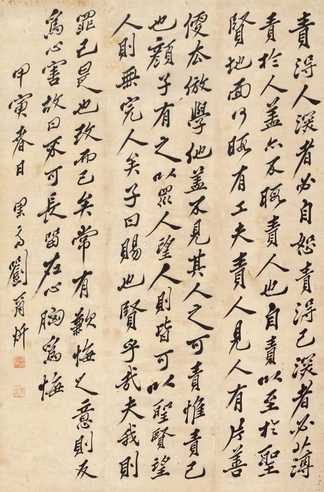 責得人深者必自恕責得己深者必薄
責於人蓋亦不暇責人也自責以至於聖
賢地面何暇有工夫責人見人有片善
便去倣學他蓋不見其人之可責惟責己
也顏子有之以眾人望人則皆可以聖賢望
人則無完人矣子曰賜也賢乎哉夫我則
罪己是也改而已矣常有歉悔之意則反
爲心害故曰不可長留在心胸爲悔
甲寅春日 果齋劉爾炘